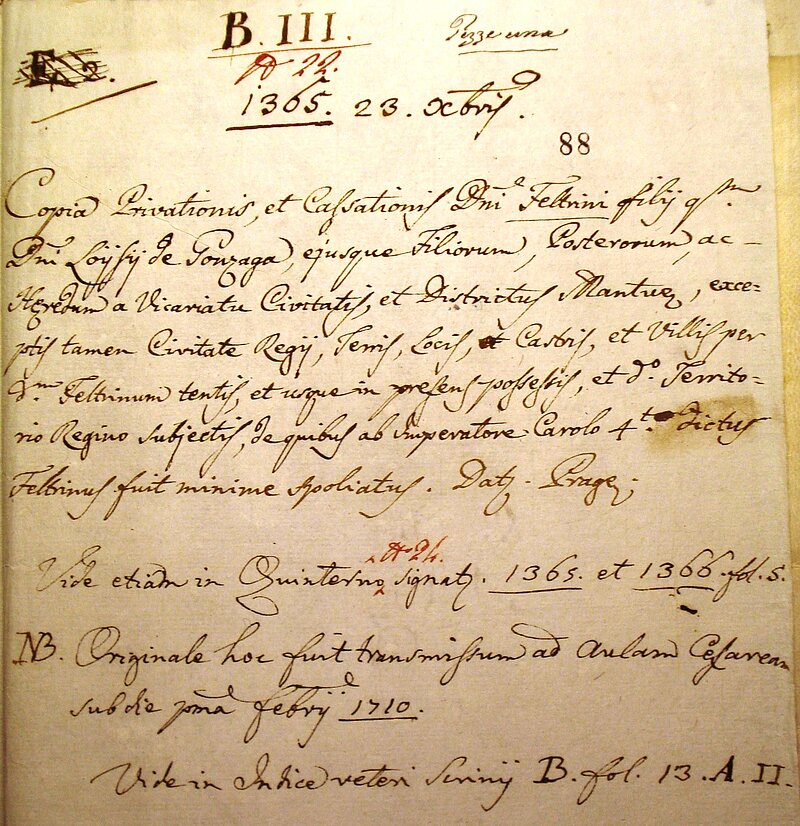 B. III. Pezze una
N 22.
1365. 23. Xbris.
88
Copia Privationis, et Cassationis Dni Feltrini filij qm
Dni Loijsij de Gonzaga, ejusque Filiorum, Posterorum, ac
Hęredum a Vicariatu Civitatis, et Districtus Mantuę, exce=
ptis tamen Civitate Regij, Terris, Locis, et Castris, et Villis per
dm Feltrinum tentis, et usque in presens possessis, et do Territo-
rio Regino subjectis, de quibus ab Imperatore Carolo 4to dictus
Feltrinus fuit minime spoliatus. Datę. Pragę.
Vide etiam in Quinterno N 24. signatę. 1365. et 1366. fol. 5.
NB. Originale hoc fuit transmissum ad Aulam Cęsaream
sub die pma Febrij 1710.
Vide in Indice veteri Scrinij B. fol. 13. A. II.